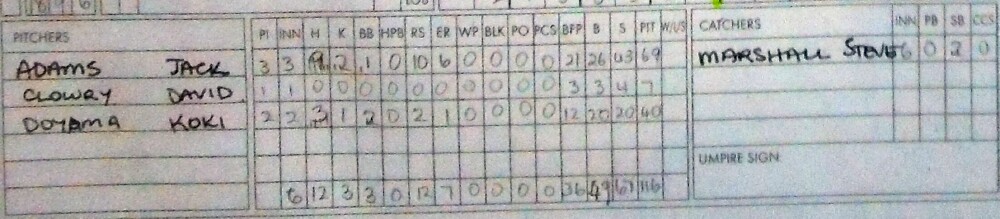 PITCHERS PI INN H K BB HPB RS ER WP BLK PO PCS BFP B S PIT W/L/S CATCHERS INN PB SB CCS
ADAMS JACK 3 3 9 2 1 0 10 6 0 0 0 0 21 26 43 69 MARSHALL STEVE 6 0 2 0
CLOWRY DAVID 1 1 0 0 0 0 0 0 0 0 0 0 3 3 4 7
DOYAMA KOKI 2 2 3 1 2 0 2 1 0 0 0 0 12 20 20 40
UMPIRE SIGN
6 12 3 3 0 12 7 0 0 0 0 36 49 67 116